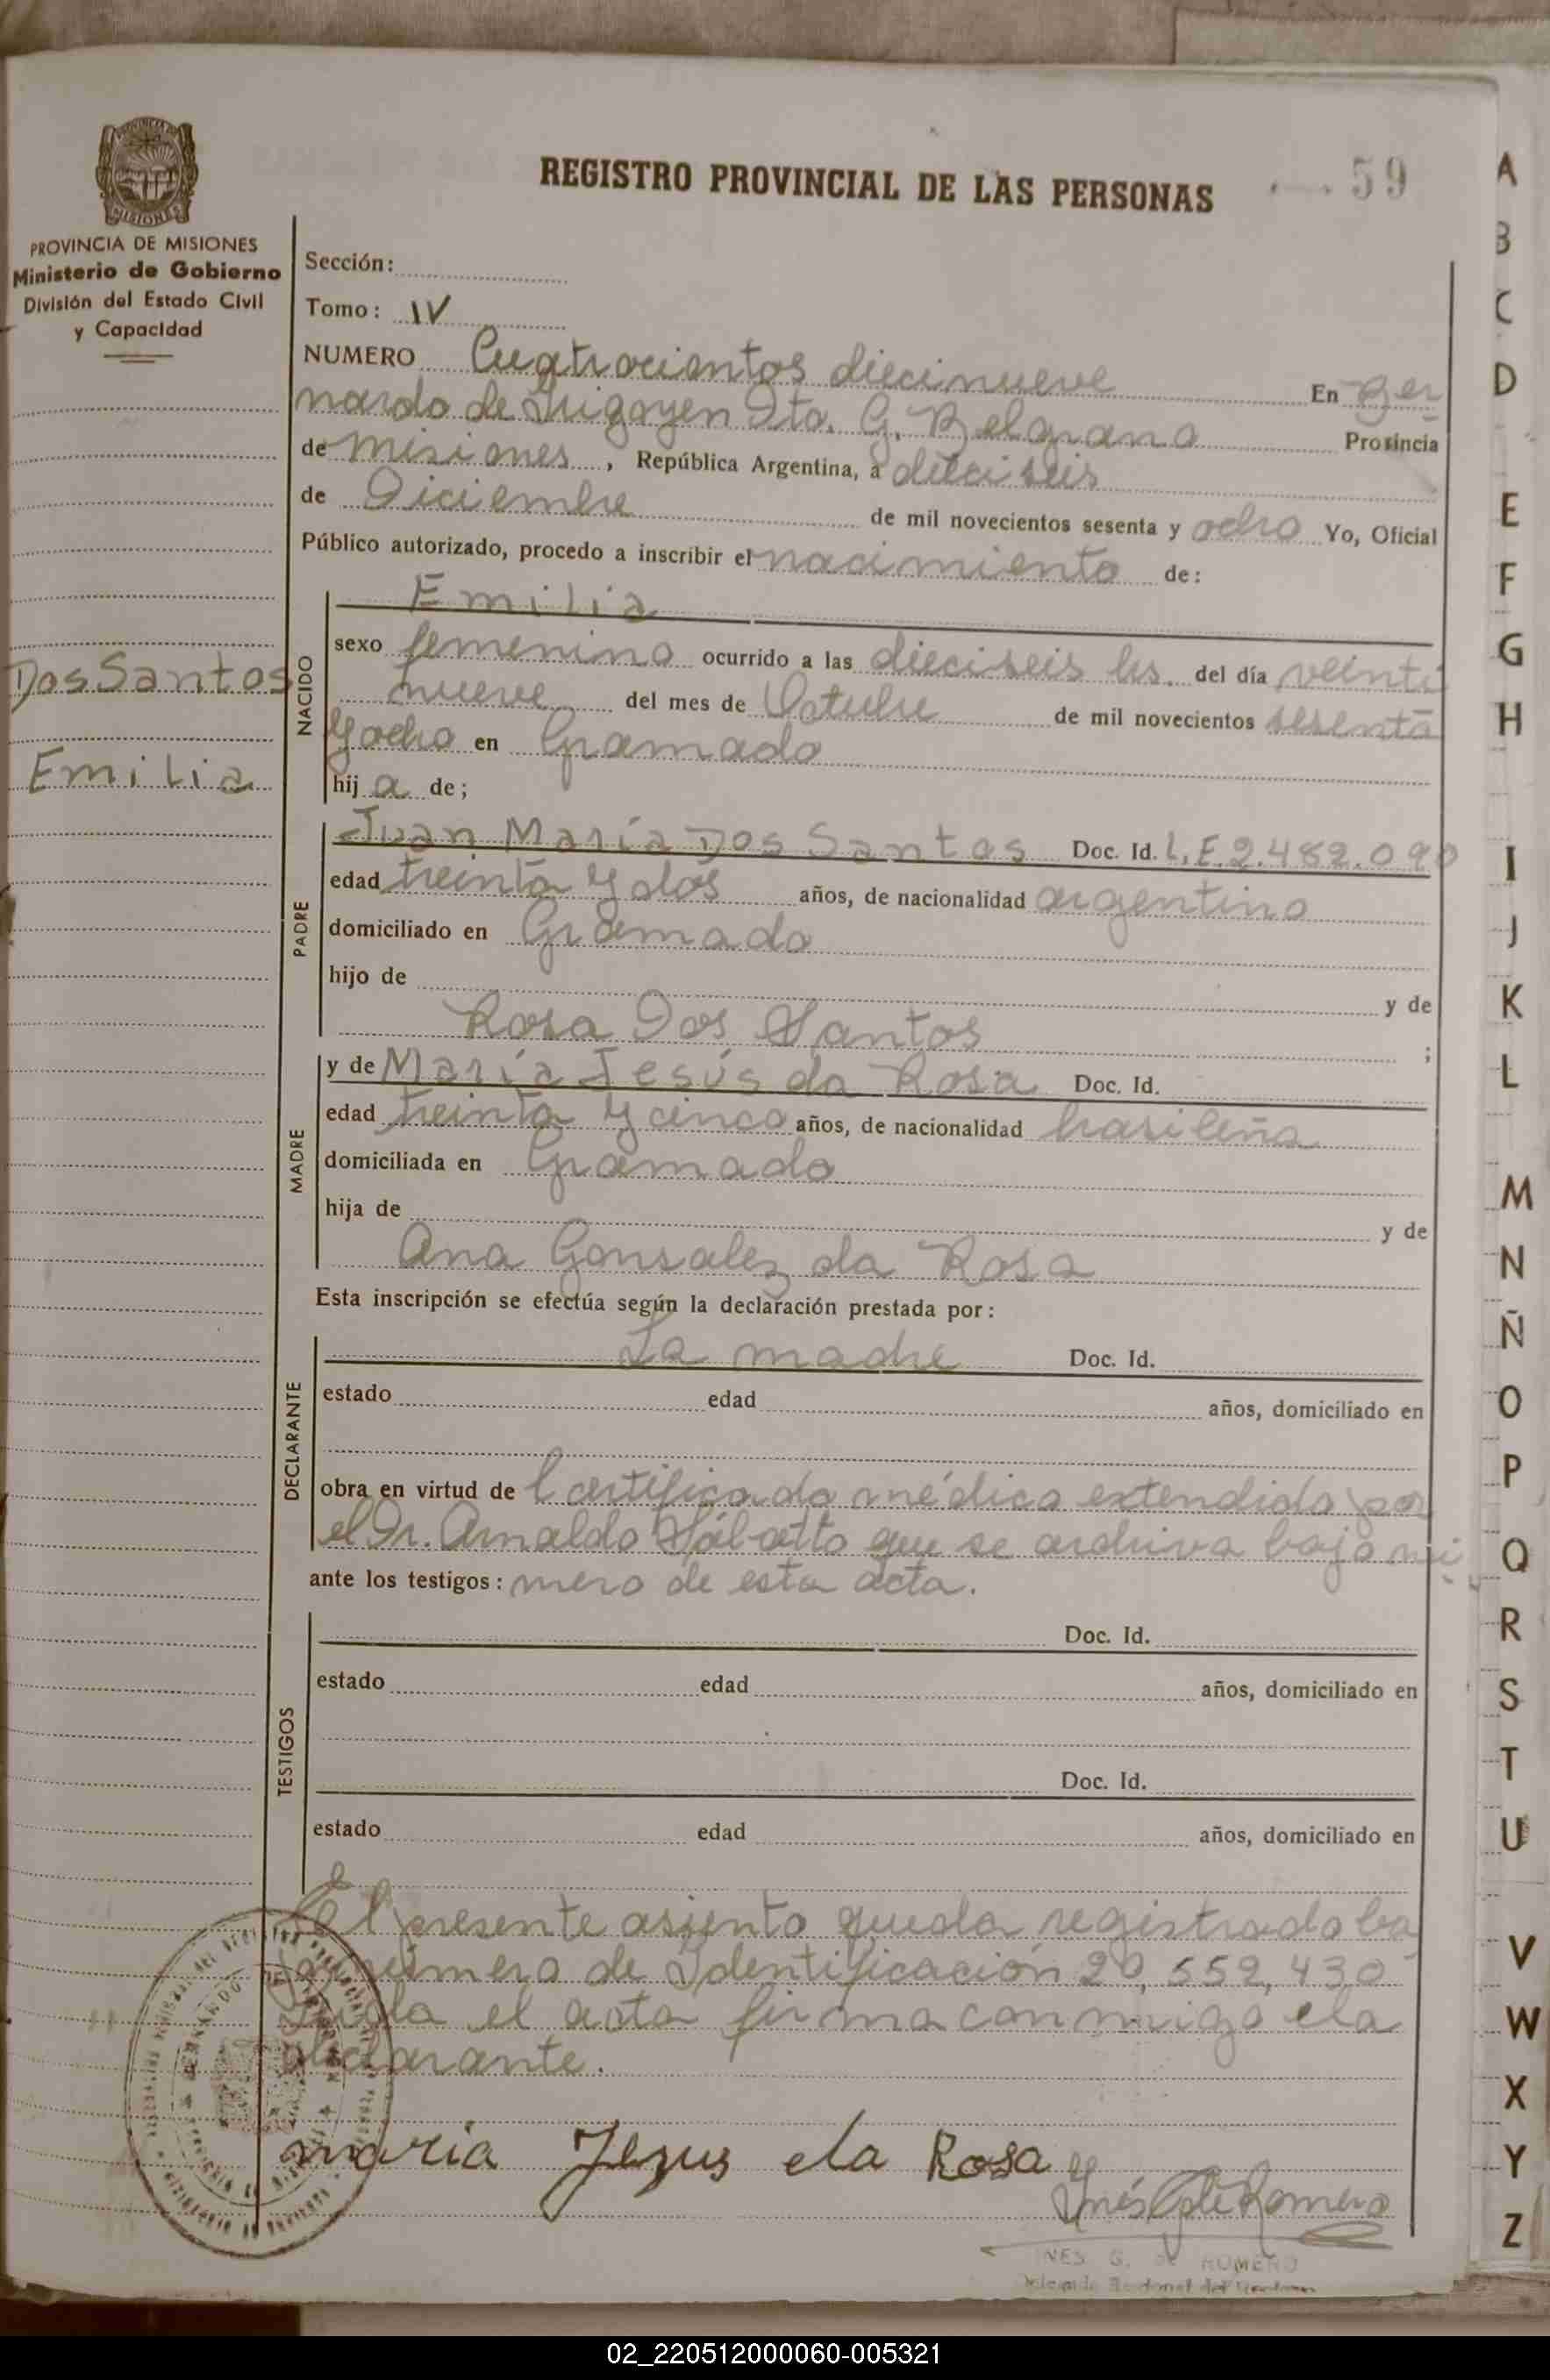 REGISTRO PROVINCIAL DE LAS PERSONAS
59
PROVINCIA DE MISIONES
Ministerio de Gobierno
División del Estado Civil
y Capacidad
Dos Santos
Emilia
Sección:
Tomo: IV
NUMERO Cuatrocientos diecinueve En Ber
nardo de Irigoyen Dto. G. Belgrano Provincia
de Misiones, República Argentina, a dieciseis
de Diciembre de mil novecientos sesenta y ocho Yo, Oficial
Público autorizado, procedo a inscribir el nacimiento de:
NACIDO
Emilia
sexo femenino ocurrido a las dieciseis hs. del día veinti
nueve del mes de Octubre de mil novecientos sesenta
y ocho en Gramado
hij a de;
PADRE
Juan María Dos Santos Doc. Id. L.E.2.482.090
edad treinta y dos años, de nacionalidad argentino
domiciliado en Gramado
hijo de y de
Rosa Dos Santos ;
MADRE
y de María Jesús da Rosa Doc. Id.
edad treinta y cinco años, de nacionalidad brasileña
domiciliada en Gramado
hija de y de
Ana Gonsalez da Rosa
Esta inscripción se efectúa según la declaración prestada por:
DECLARANTE
La madre Doc. Id.
estado edad años, domiciliado en
obra en virtud de Certificado médico extendido por
el Dr. Arnaldo que se archiva bajo nú
ante los testigos: mero de esta acta.
TESTIGOS
Doc. Id.
estado edad años, domiciliado en
Doc. Id.
estado edad años, domiciliado en
El presente asiento queda registrado ba
jo número de Identificación 20,552,430
el acta firma conmigo la
declarante.
maria Jezus da Rosa
Inés G de Romero
INES G. de ROMERO
A
B
C
D
E
F
G
H
I
J
K
L
M
N
Ñ
O
P
Q
R
S
T
U
V
W
X
Y
Z
02_220512000060-005321